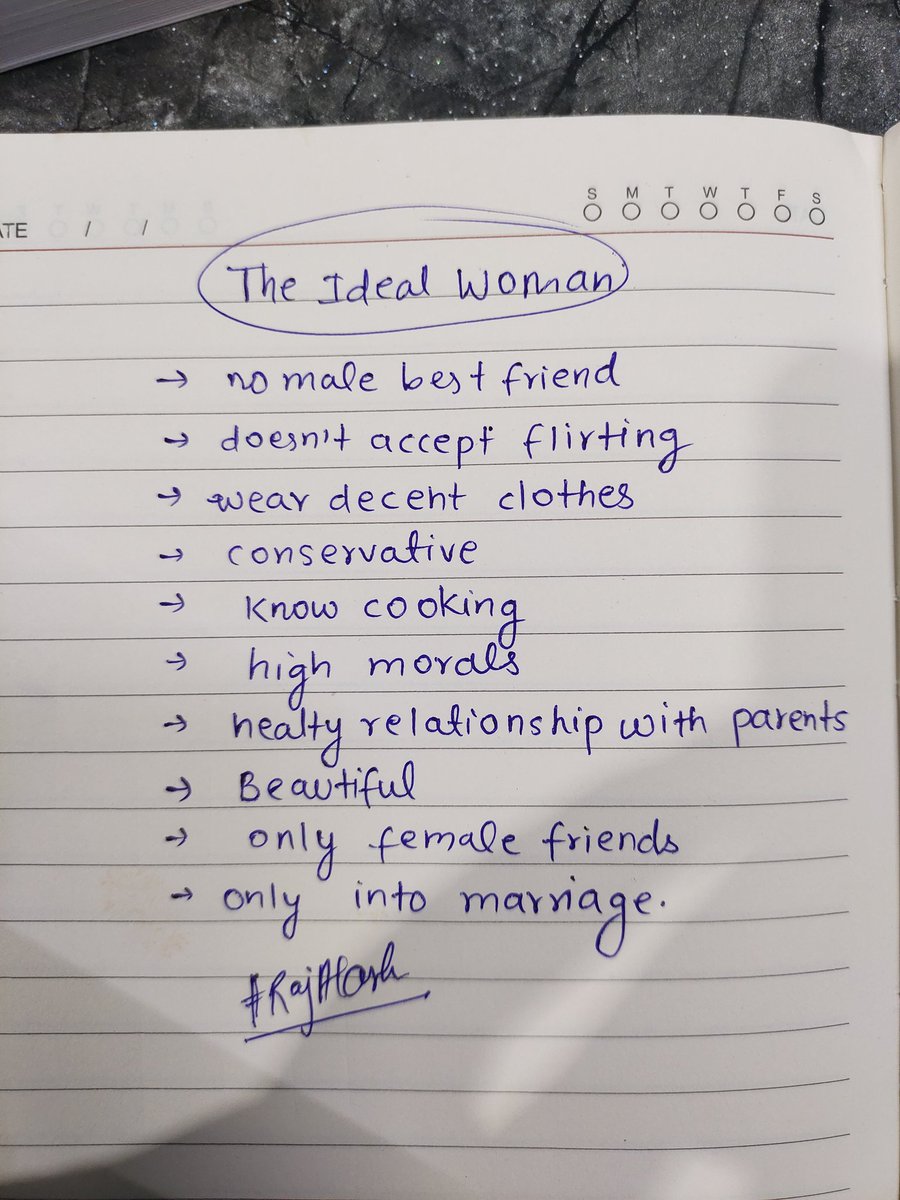 S M T W T F S
ATE / /
The Ideal Woman
→ no male best friend
→ doesn't accept flirting
→ wear decent clothes
→ conservative
→ Know cooking
→ high morals
→ healty relationship with parents
→ Beautiful
→ only female friends
→ only into marriage.